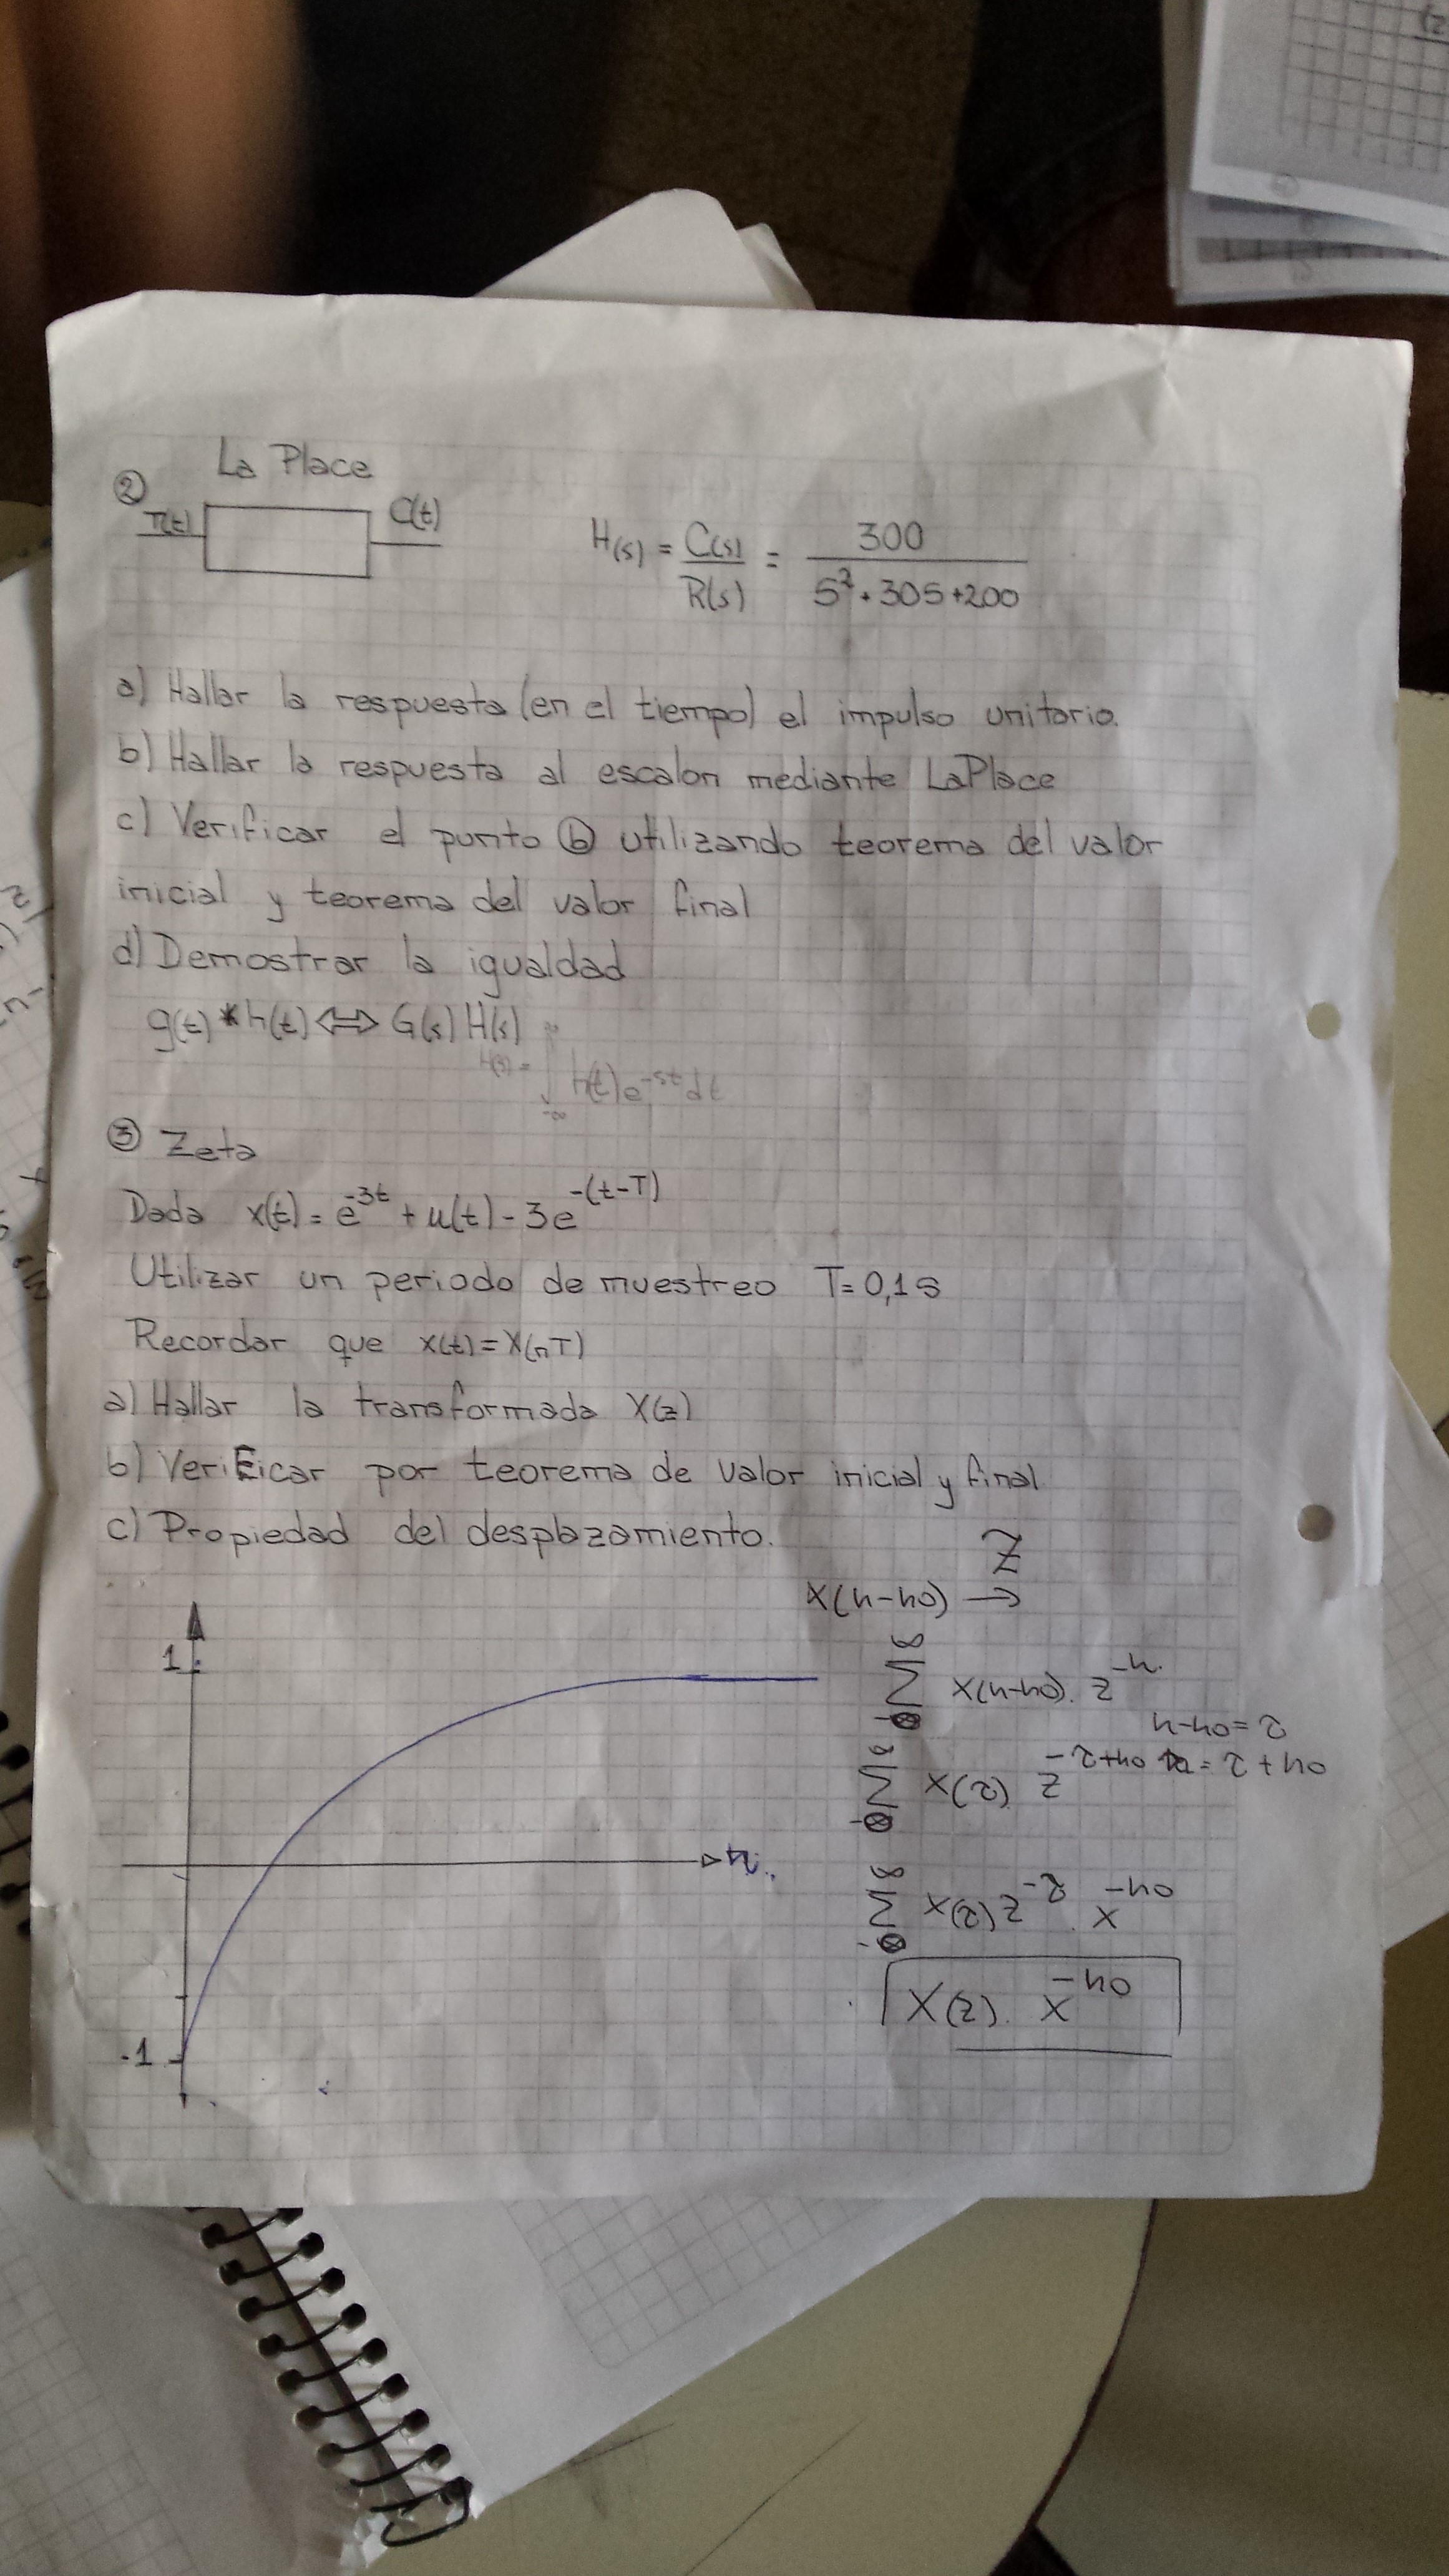 La Place
②
r(t) C(t)
H(s) = C(s)/R(s) = 300/(s²+30s+200)
a) Hallar la respuesta (en el tiempo) el impulso unitario.
b) Hallar la respuesta al escalon mediante LaPlace
c) Verificar el punto ⓑ utilizando teorema del valor
inicial y teorema del valor final
d) Demostrar la igualdad
g(t) * h(t) <=> G(s) H(s)
H(s) = ∫ h(t) e^-st dt
-∞ ∞
③ Zeta
Dada x(t) = e^-3t + u(t) - 3e^-(t-T)
Utilizar un periodo de muestreo T=0,1s
Recordar que x(t) = X(nT)
a) Hallar la transformada X(z)
b) Verificar por teorema de valor inicial y final
c) Propiedad del desplazamiento.
Z
x(n-n0) →
1
∞ Σ x(n-n0). z^-n.
n-n0 = τ
∞ Σ x(τ) z^-τ+n0 n = τ+n0
n
∞ Σ x(τ) z^-τ . x^-n0
X(z). x^-n0
-1